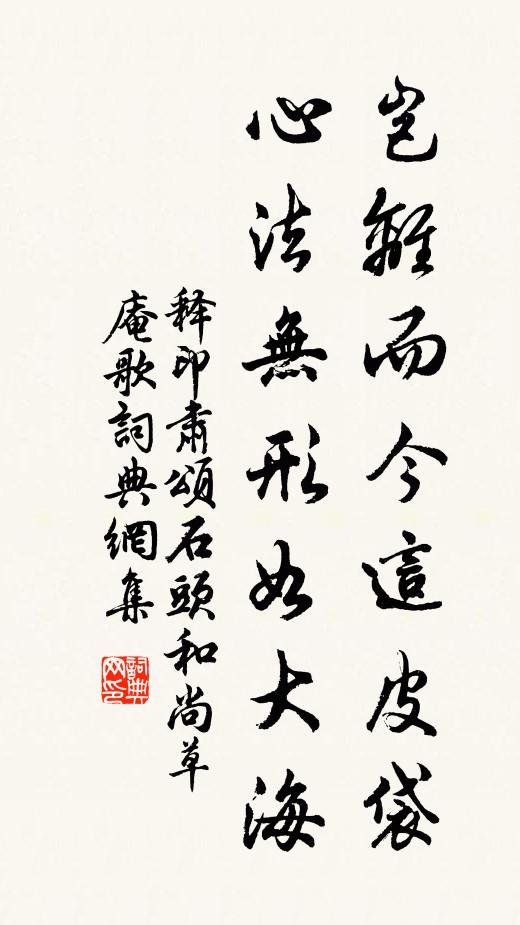 豈離而今這皮袋
心法無形如大海
释印肃頌石頭和尚草
庵歌詞典網集
詞典网印